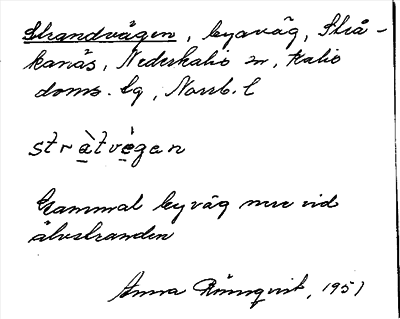 Strandvägen, byaväg, Strå-
kanäs, Nederkalix sn, Kalix
doms. lg, Norrb. l
stràtvègen
Gammal byväg nere vid
älvstranden
Anna Rönnqvist, 1951